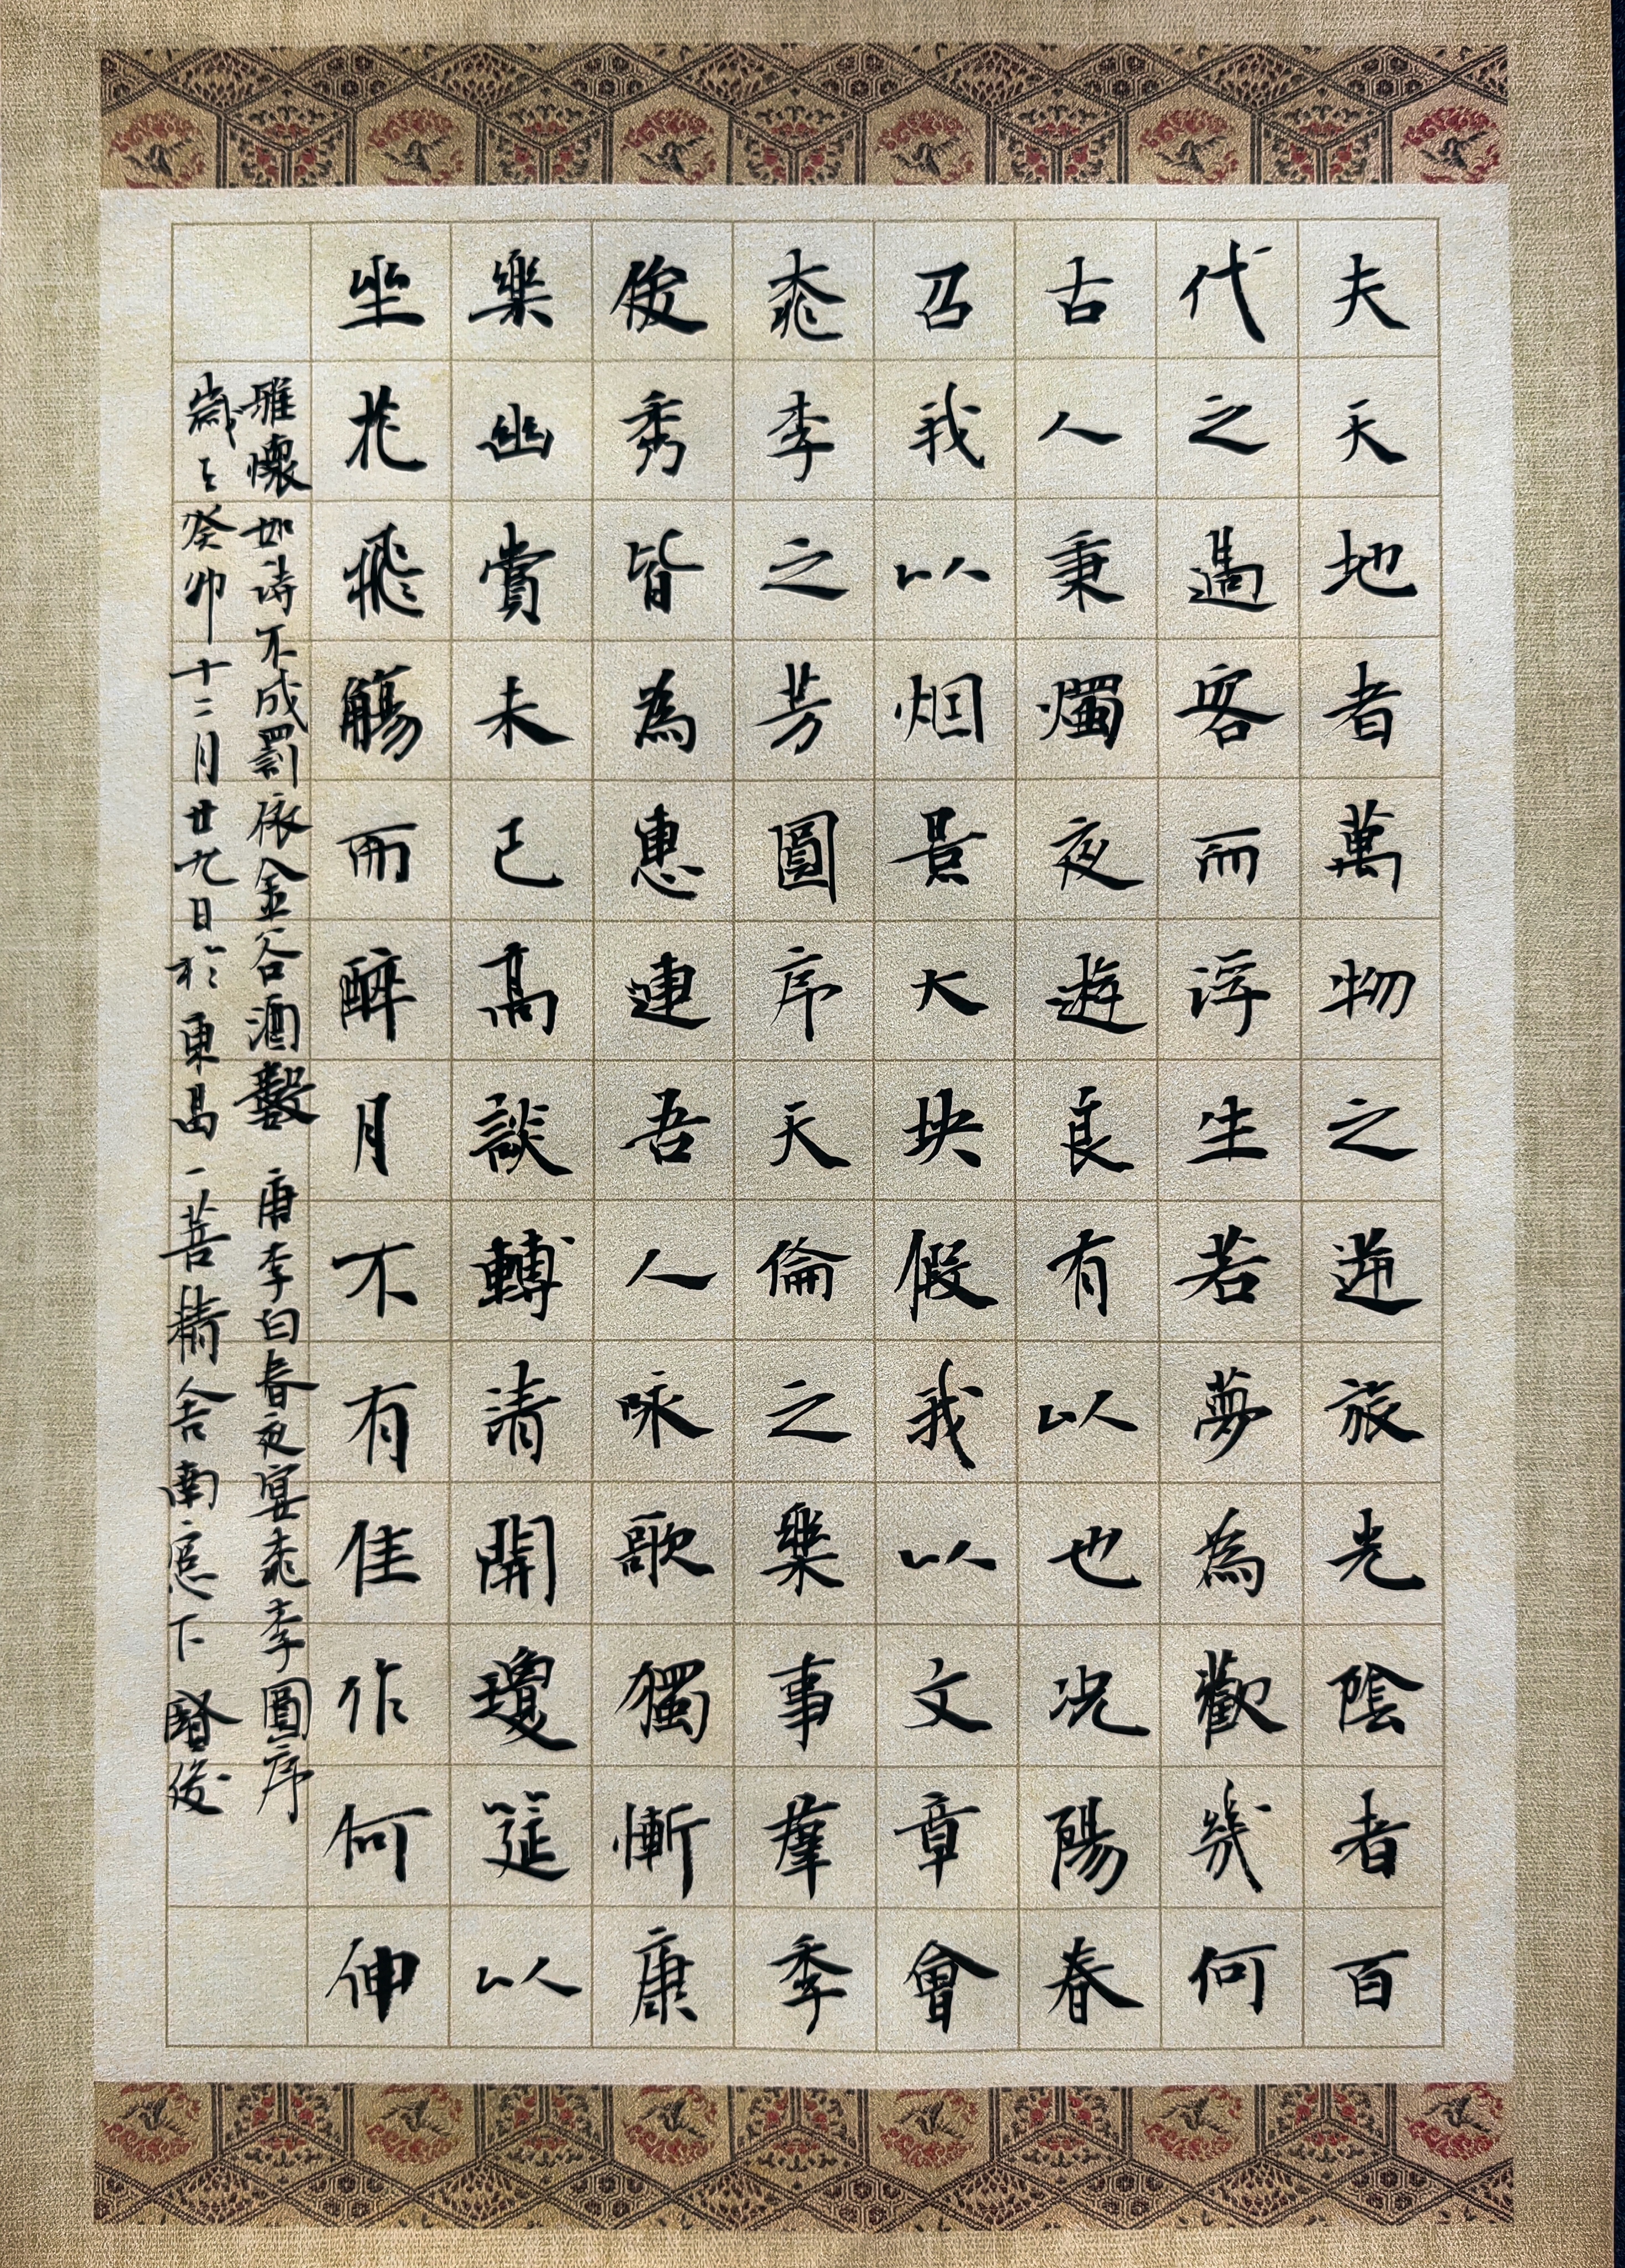 夫天地者萬物之逆旅光陰者百
代之過客而浮生若夢為歡幾何
古人秉燭夜遊良有以也况陽春
召我以烟景大块假我以文章會
桃李之芳園序天倫之樂事羣季
俊秀皆為惠連吾人咏歌獨慚康
樂幽賞未已高談轉清開瓊筵以
坐花飛觴而醉月不有佳作何伸
雅懷如詩不成罰依金谷酒數 唐李白春夜宴桃李園序
歲在癸卯十二月廿九日於東昌一菩精舍南窻下 賢俊